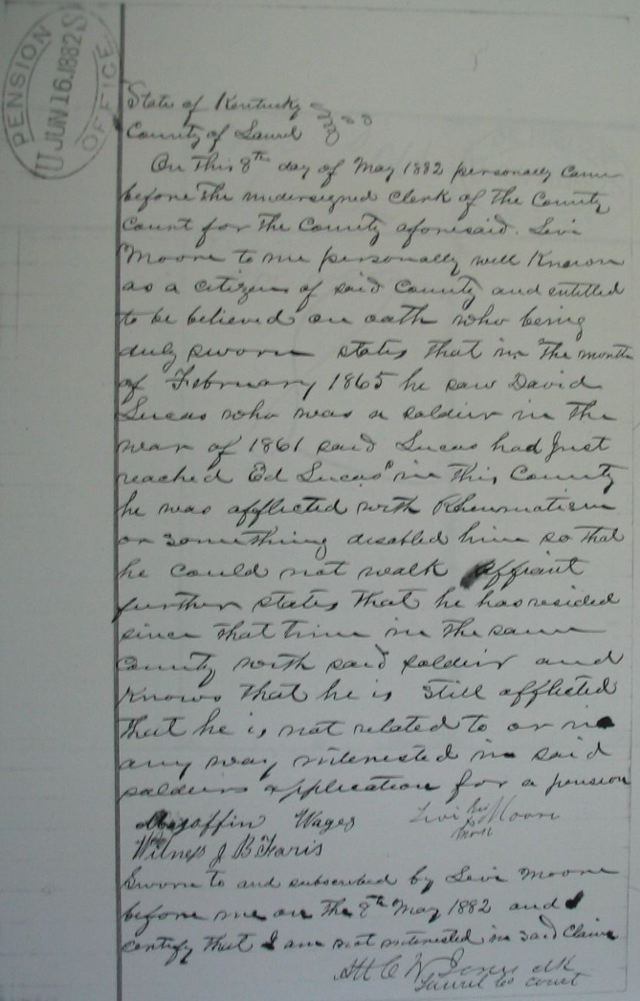 PENSION OFFICE
U JUN 16 1882 S
State of Kentucky
County of Laurel
On this 8th day of May 1882 personally came
before the undersigned Clerk of the County
Court for the County aforesaid. Levi
Moore to me personally well Known
as a citizen of said County and entitled
to be believed on oath who being
duly sworn states that in the month
of February 1865 he saw David
Lucas who was a soldier in the
war of 1861 said Lucas had Just
reached Ed Lucas' in this County
he was afflected with Rheumatism
or something disabled him so that
he could not walk affiant
further states that he has resided
since that time in the same
County with said soldier and
Knows that he is still afflected
that he is not related to or in
any way interested in said
soldiers application for a pension
Magoffin Wages Levi his Moore
mark
Witness J B Faris
Sworn to and subscribed by Levi Moore
before me on the 8th May 1882 and I
certify that I am not interested in said Claim
Laurel Co Court